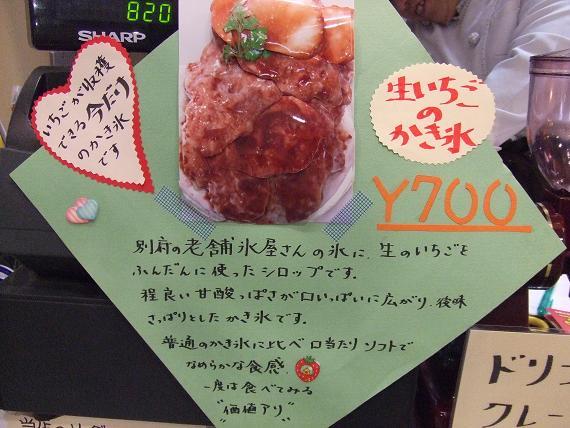 820
SHARP
いちごが収穫
できる今だけ
のかき氷
です
生いちご
の
かき氷
¥700
別府の老舗氷屋さんの氷に、生のいちごを
ふんだんに使ったシロップです。
程良い甘酸っぱさが口いっぱいに広がり、後味
さっぱりとしたかき氷です。
普通のかき氷に比べ口当たりソフトで
なめらかな食感
一度は食べてみる
"価値アリ"
ドリ
クレー